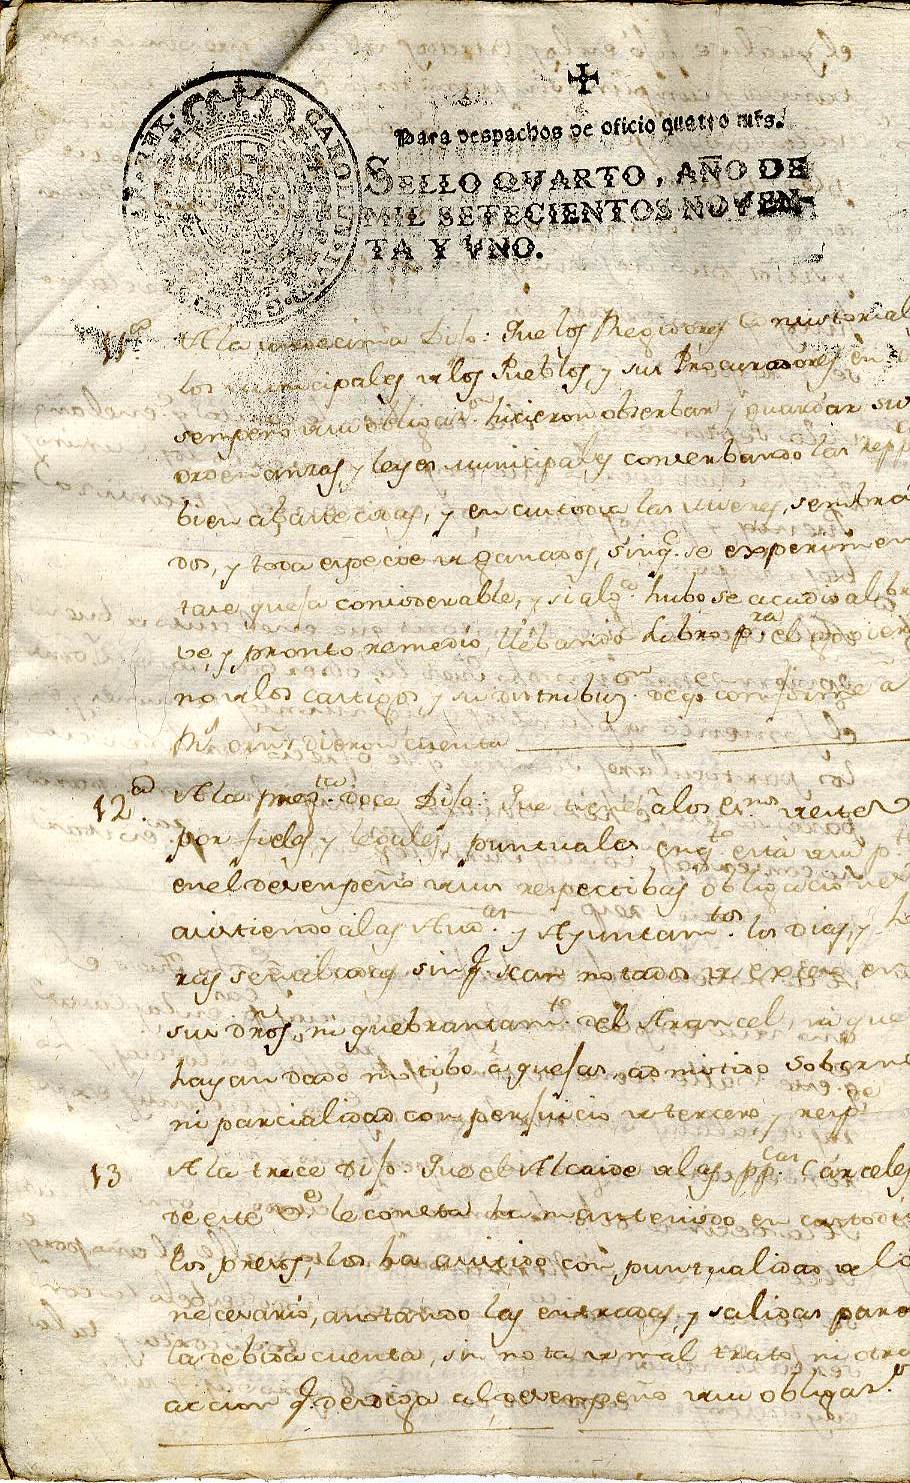 ✠
Para despachos de oficio quatro mrs.
SELLO QVARTO, AÑO DE
MIL SETECIENTOS NOVEN-
TA Y VNO.
CAROLUS IV D G
REX
11ª
A la undecima Dijo: Que los Regidores
los municipales de los Pueblos, y sus Procuradores en
sempeño de su obligaon. hicieron obserbar y guardar sus
ordenanzas y leyes municipales conserbando las
bien abastecidas, y en custodia las mieses, sembra
dos, y toda especie de ganados, sin q. se experimen
tase queja considerable, y si algª. hubo se acudio al bre
ve, y pronto remedio, llebando Libro pra. el
no de los castigos y su distribuon. de q. conforme a
Rs. orns. dieron cuenta
12.ª
A la pregta. doce Dijo: Que tiene a los esnos. de este
por fieles y legales, puntuales en qto. esta de su pte
en el desenpeño de sus respectibas obligaciones
asistiendo a las Audas. y Ayuntamtos. los Dias, y ho
ras señaladas sin q. sean notados de exceso en
sus Dros, ni quebrantamto. del Arancel, ni que
hayan dado motibo a quejas, admitido soborno
ni parcialidad con perjuicio de tercero y respe
13
A la trece Dijo. Que el Alcaide de las ppcas. Carceles
de este le consta ha mantenido en custodia
los presos, los ha asistido con puntualidad de lo
necesario, anotando las entradas, y salidas para
la debida cuenta, sin nota de mal trato ni otra
accion q. desdiga al desempeño de su obligan.